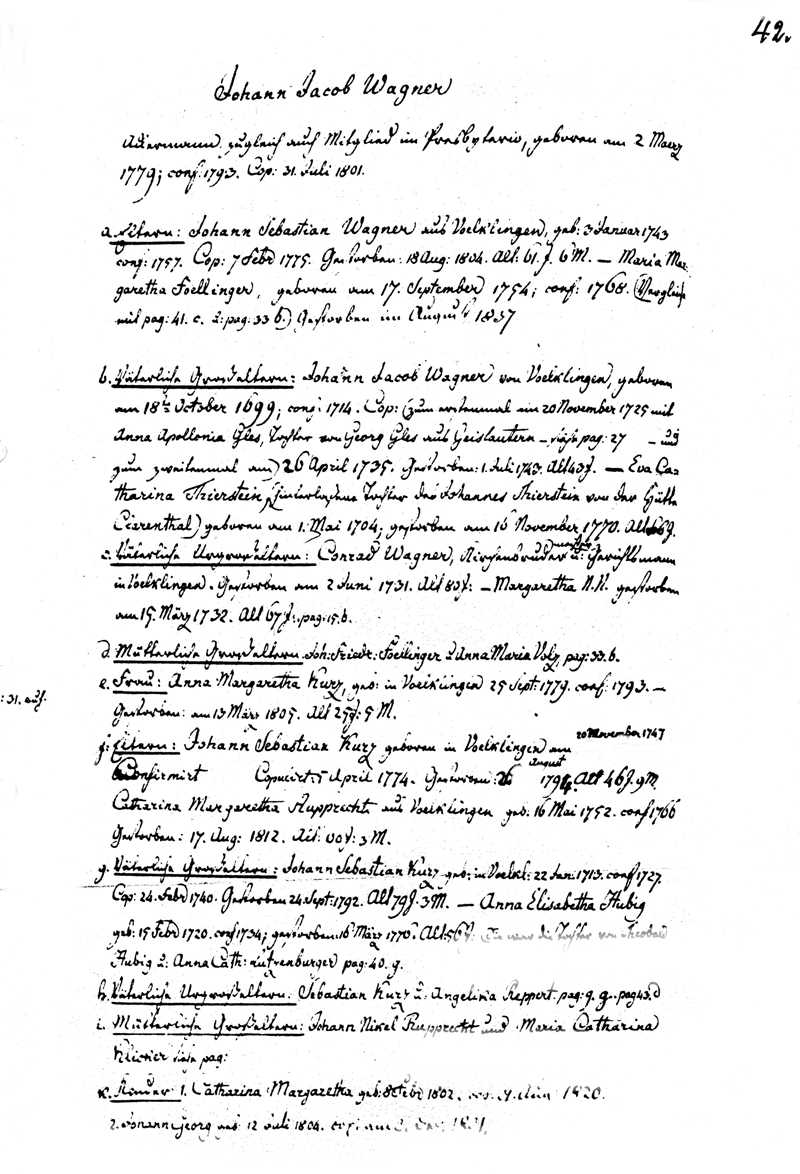 42.
Johann Jacob Wagner
Ackermann zugleich auch Mitglied im Presbyterio, geboren am 2 Maerz
1779; conf: 1793. Cop: 31. Juli 1801.
a. Eltern: Johann Sebastian Wagner aus Voelklingen, geb: 3 Januar 1743
conf: 1757. Cop: 7 Febr 1775. Gestorben: 18 Aug: 1804. Alt: 61. J. 6 M. — Maria Mar-
garetha Foellinger, geboren am 17. September 1754; conf: 1768. (Vergleiche
mit pag: 41. c. u: pag: 33 b.) Gestorben im August 1837
b. Väterliche Großeltern: Johann Jacob Wagner von Voelklingen, geboren
am 18ten October 1699; conf: 1714. Cop: (zum erstenmal am 20 November 1725 mit
Anna Apollonia Gles, Tochter von Georg Gles aus Geislautern – siehe pag: 27 – und
zum zweitenmal am) 26 April 1735. Gestorben: 1. Juli 1743. Alt 43 J. — Eva Ca-
tharina Thierstein, (hinterlassene Tochter des Johannes Thierstein von der Hütte
Clarenthal) geboren am 1. Mai 1704; gestorben am 16 November 1770. Alt 66 J.
c. Väterliche Urgroßeltern: Conrad Wagner, Kirchenbruder u: Gerichtsmann
in Voelklingen. Gestorben am 2 Juni 1731. Alt 80 J: – Margaretha N.N. gestorben
am 15. März 1732. Alt 67 J: pag: 15. b.
d. Mütterliche Großeltern. Joh: Friedr: Foellinger u Anna Maria Volz, pag: 33. b.
e. Frau: Anna Margaretha Kurz, geb: in Voelklingen 25 Sept: 1779. conf: 1793. —
: 31. auf.
Gestorben: am 13 März 1805. Alt 25 J: 5 M.
f: Eltern: Johann Sebastian Kurz geboren in Voelklingen am 20 November 1747
Confirmirt Copulirt 5 April 1774. Gestorben: 26 august 1794. Alt 46 J. 9 M.
Catharina Margaretha Rupprecht aus Voelklingen geb: 16 Mai 1752. conf 1766
Gestorben: 17. Aug: 1812. Alt: 60 J: 3 M.
g. Väterliche Großeltern: Johann Sebastian Kurz geb: in Voelkl: 22 Jan: 1713. conf 1727.
Cop: 24. Febr 1740. Gestorben 24 Sept: 1792. Alt 79 J. 3 M. — Anna Elisabetha Hubig
geb: 15 Febr 1720. conf 1734; gestorben: 16 März 1776. Alt: 56 J: Sie war die Tochter von Theobald
Hubig u: Anna Cath: Lutzenburger pag: 40. g.
h. Väterliche Urgroßeltern: Sebastian Kurz u: Angelika Reppert. pag: 9. g. pag 43. d
i. Mütterliche Großeltern: Johann Nikel Rupprecht und Maria Catharina
siehe pag:
k. Kinder 1. Catharina Margaretha geb: 8 Febr 1802. 1820.
2. Johann Georg geb: 12 Juli 1804.